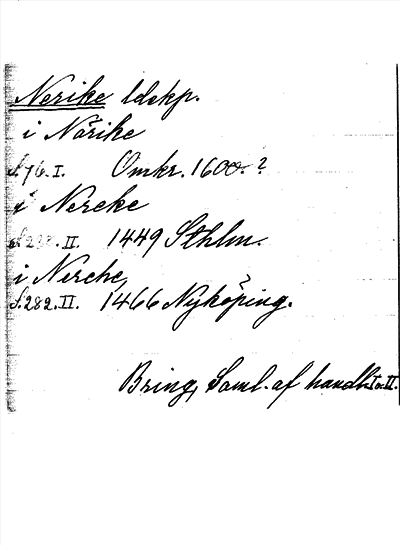 Nerike ldskp.
i Närike
S. 76. I. Omkr. 1600. ?
i Nereke
S. 228. II. 1449 Sthlm.
i Nerche,
S. 282. II. 1466 Nyköping.
Bring, Saml. af handl. I o. II.